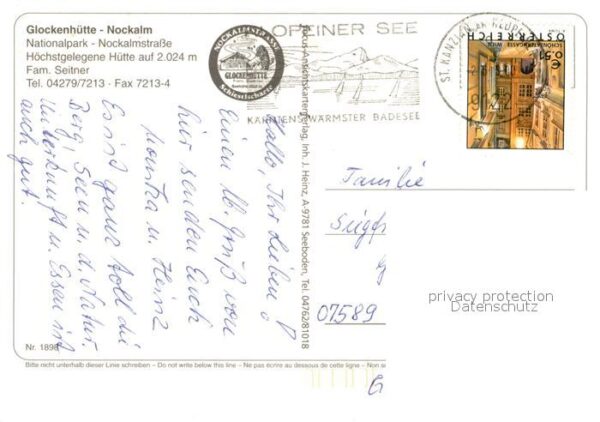 Glockenhütte - Nockalm
Nationalpark - Nockalmstraße
Höchstgelegene Hütte auf 2.024 m
Fam. Seitner
Tel. 04279/7213 · Fax 7213-4
NOCKALMSTRASSE
GLOCKENHÜTTE
Schiestlscharte
OPEINER SEE
KÄRNTENS WÄRMSTER BADESEE
ST. KANZIAN AM KLOPEI
ÖSTERREICH
€ 0,51
WIEN
Hallo, Ihr Lieben!
Einen lb. Gruß von
hier senden Euch
Monika u. Heinz
Es ist ganz toll die
Berg, Seen u. d. Natur.
Unterkunft u. Essen ist
auch gut.
Ansichtskartenverlag, Inh. J. Heinz, A-9781 Seeboden, Tel. 04762/81018
Familie
Siegf
07589
privacy protection
Datenschutz
Nr. 1898
Bitte nicht unterhalb dieser Linie schreiben – Do not write below this line – Ne pas écrire au dessous de cette ligne – Non s